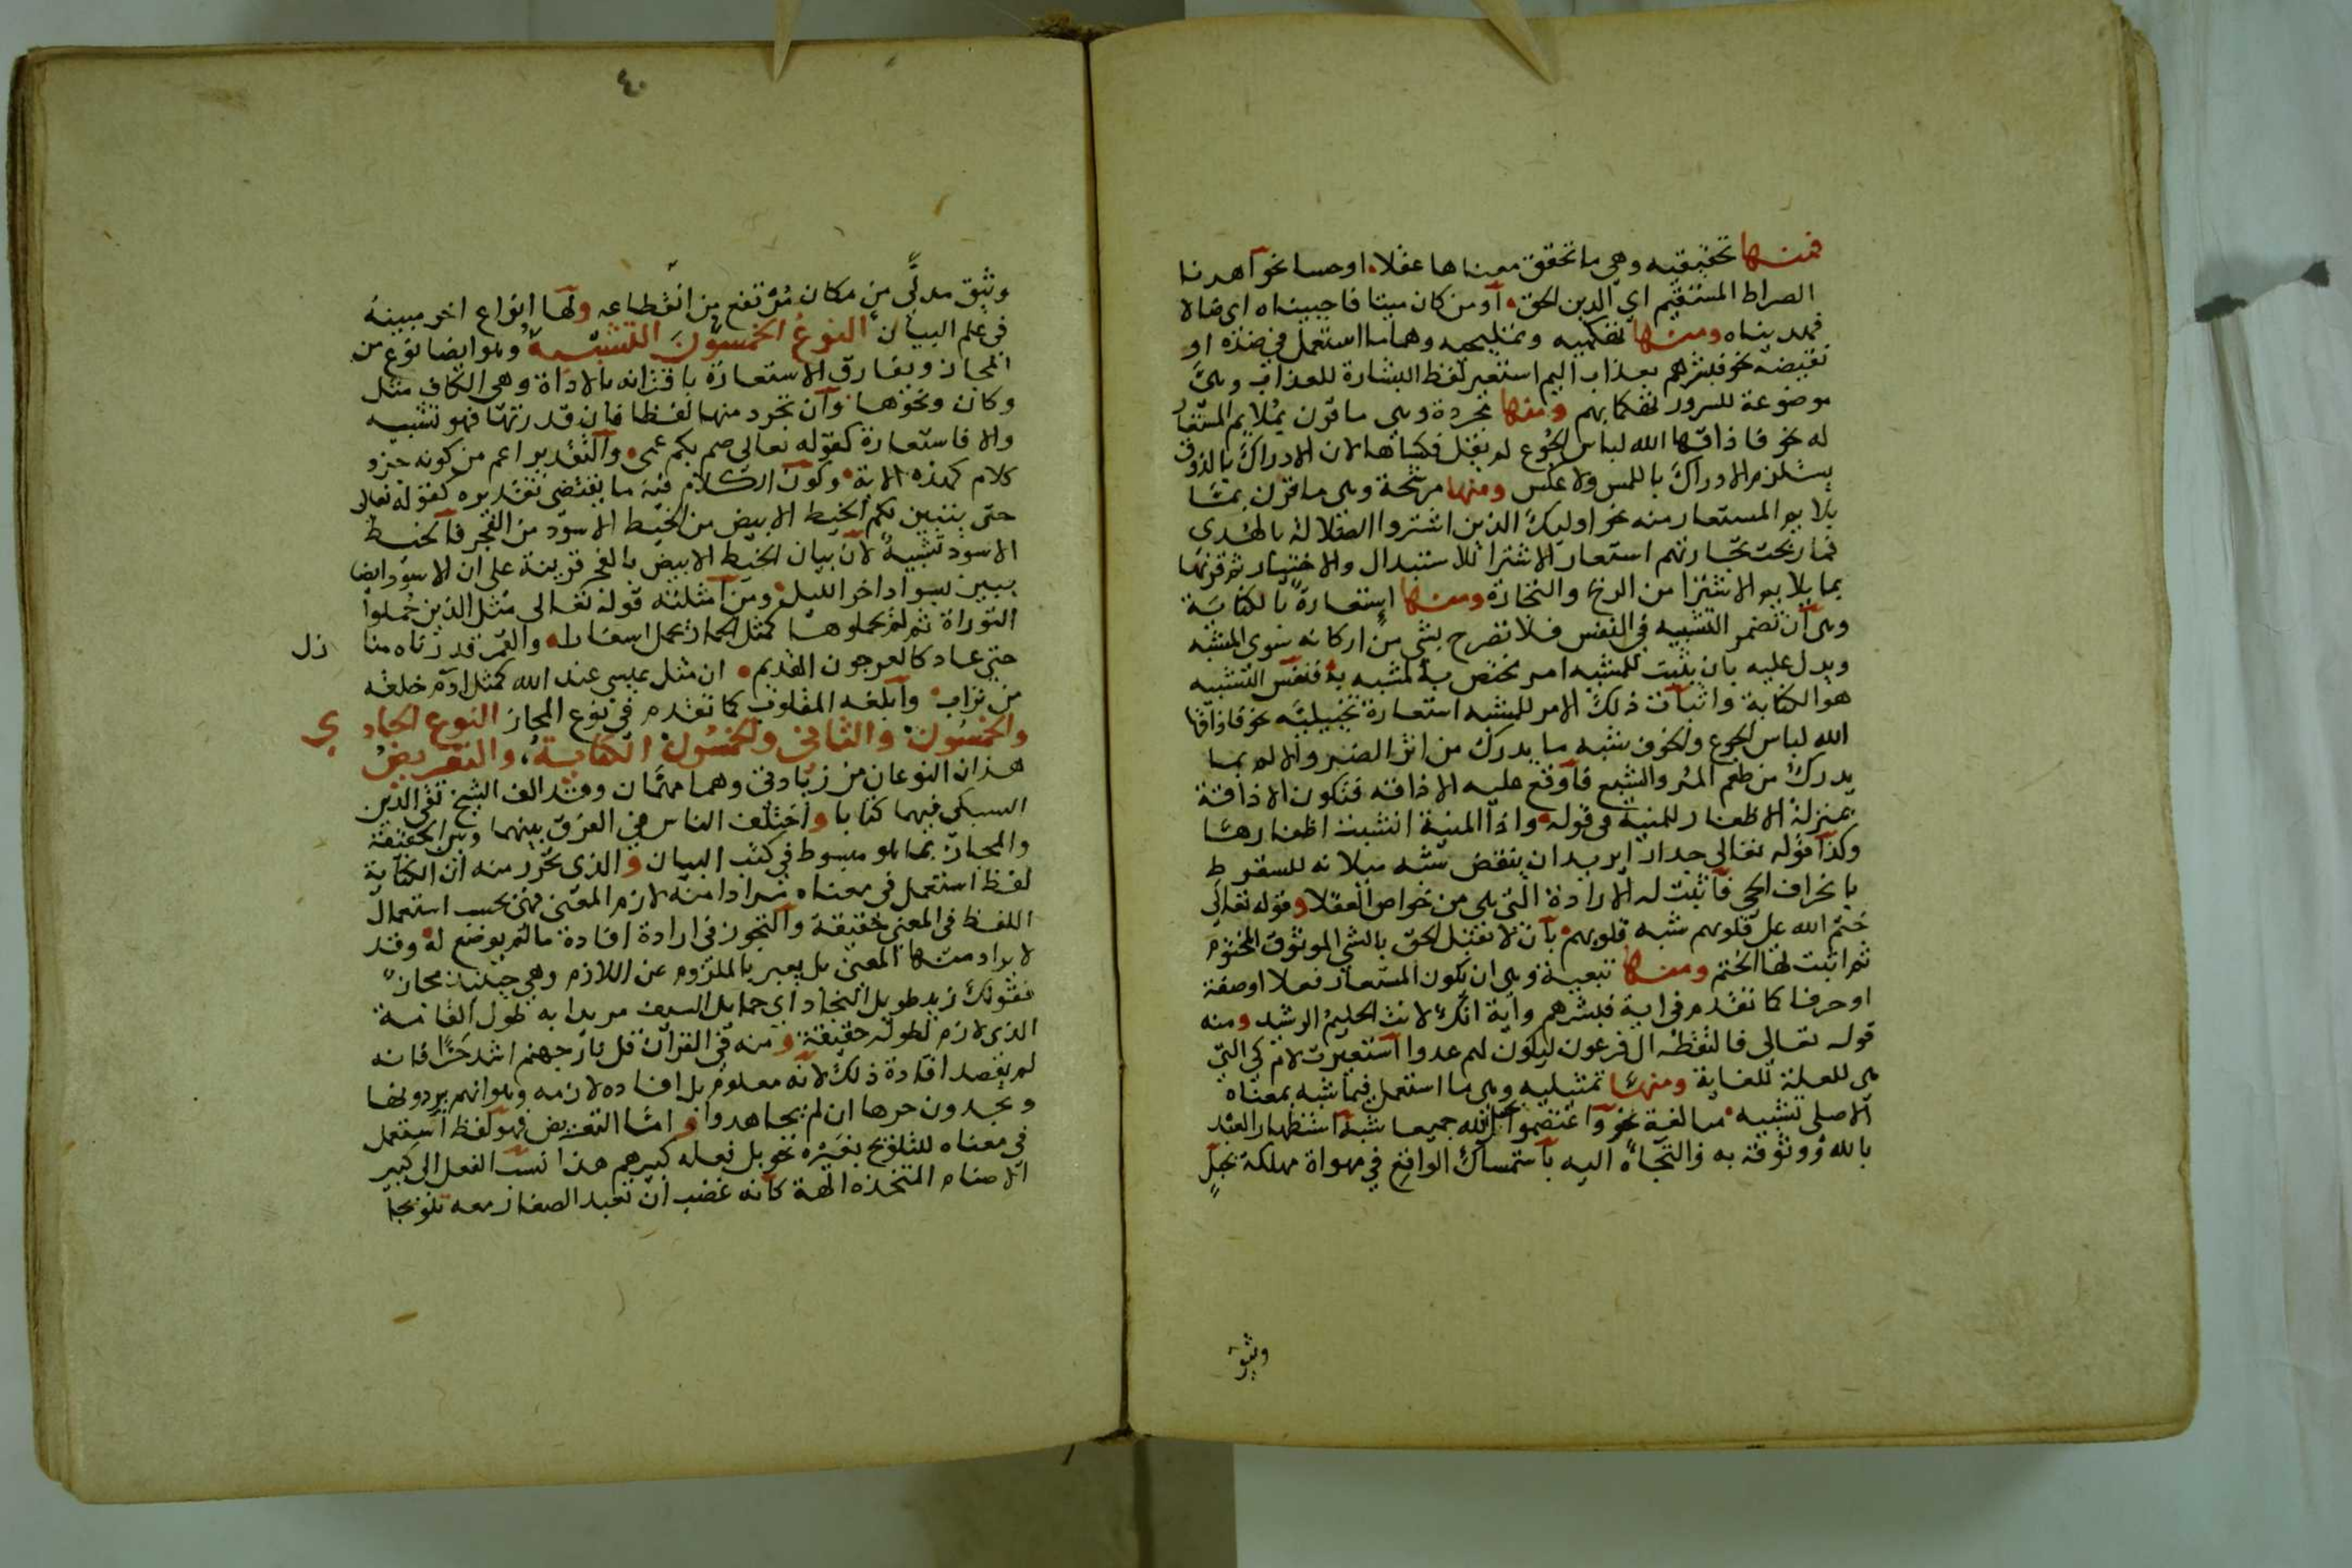 فمنها تحقيقيه وهي ما تحقق معناها عقلا او حسا نحو اهدنا
الصراط المستقيم اي الدين الحق او من كان ميتا فاحييناه اي ضالا
فهديناه ومنها تهكميه وتمليحيه وهما ما استعمل في ضده او
نقيضه نحو فبشرهم بعذاب اليم استعير لفظ البشارة للعذاب وهي
موضوعة للسرور تهكما بهم ومنها مجردة وهي ما قرن بملايم المستعار
له نحو فاذاقها الله لباس الجوع لم يقل فكساها لان الادراك بالذوق
يستلزم الادراك باللمس ولا عكس ومنها مرشحة وهي ما قرن بما
يلايم المستعار منه نحو اوليك الذين اشتروا الضلالة بالهدى
فما ربحت تجارتهم استعار الاشترا للاستبدال والاختيار ثم قرنها
بما يلايم الاشترا من الربح والتجارة ومنها استعارة بالكناية
وهي ان تضمر التشبيه في النفس فلا تصرح بشي من اركانه سوى المشبه
ويدل عليه بان يثبت للمشبه امر مختص بالمشبه به فنفس التشبيه
هو الكناية واثبات ذلك الامر للمشبه استعارة تخييلية نحو فاذاقها
الله لباس الجوع والخوف شبه ما يدرك من اثر الضر والالم بما
يدرك من طعم المر والبشع فاوقع عليه الاذاقة فتكون الاذاقة
بمنزلة الاظفار للمنية في قوله واذا المنية انشبت اظفارها
وكذا قوله تعالى جدارا يريد ان ينقض شبه ميلانه للسقوط
بانحراف الحي فاثبت له الارادة التي هي من خواص العقلا وقوله تعالى
ختم الله على قلوبهم شبه قلوبهم بان لا تقبل الحق بالشي الموثوق المختوم
ثم اثبت لها الختم ومنها تبعية وهي ان يكون المستعار فعلا او صفة
او حرفا كما تقدم في اية فبشرهم واية انك لانت الحليم الرشيد ومنه
قوله تعالى فالتقطه ال فرعون ليكون لهم عدوا استعيرت لام كي التي
هي للعلة للغاية ومنها تمثيليه وهي ما استعمل فيما شبه بمعناه
الاصلي تشبيه مبالغة نحو واعتصموا بحبل الله جميعا شبه استظهار العبد
بالله ووثوقه به والتجاه اليه باستمساك الواقع في مهواة مهلكة بحبل
وثيق
٤٠
وثيق مدلى من مكان مرتفع من انقطاعه ولها انواع اخر مبينة
في علم البيان النوع الخمسون التشبيه وهو ايضا نوع من
المجاز ويفارق الاستعارة باقترانه بالاداة وهي الكاف مثل
وكان ونحوها وان تجرد منها لفظا فان قدرتها فهو تشبيه
والا فاستعارة كقوله تعالى صم بكم عمى والتقدير اعم من كونه جزو
كلام كهذه الاية وكون الكلام فيه ما يقتضى تقديره كقوله تعالى
حتى يتبين لكم الخيط الابيض من الخيط الاسود من الفجر فالخيط
الاسود تشبيه لان بيان الخيط الابيض بالفجر قرينة على ان الاسود ايضا
يبين بسواد اخر الليل ومن امثلته قوله تعالى مثل الذين حملوا
التوراة ثم لم يحملوها كمثل الحمار يحمل اسفارا والقمر قدرناه منا زل
حتى عاد كالعرجون القديم ان مثل عيسى عند الله كمثل ادم خلقه
من تراب وابلغه المقلوب كما تقدم في نوع المجاز النوع الحاد ي
والخمسون والثاني والخمسون الكناية والتعريض
هذان النوعان من زيادتي وهما مهمان وقد الف الشيخ تقي الدين
السبكي فيهما كتابا واختلف الناس في الفرق بينهما وبين الحقيقة
والمجاز بما هو مبسوط في كتب البيان والذي تحرر منه ان الكناية
لفظ استعمل في معناه مرادا منه لازم المعنى فهي بحسب استعمال
اللفظ في المعنى حقيقة والتجوز في ارادة افادة ما لم يوضع له وقد
لا يراد منها المعنى بل يعبر بالملزوم عن اللازم وهي حينئذ مجاز
فقولك زيد طويل النجاد اي حمايل السيف مريدا به طول القامة
الذي لازم لطوله حقيقة ومنه في القران قل نار جهنم اشد حرا فانه
لم يقصد افادة ذلك لانه معلوم بل افاده لازمه وهو انهم يردونها
ويجدون حرها ان لم يجاهدوا واما التعريض فهو لفظ استعمل
في معناه للتلويح بغيره نحو بل فعله كبيرهم هذا نسب الفعل الى كبير
الاصنام المتخذه الهة كانه غضب ان تعبد الصغار معه تلويحا